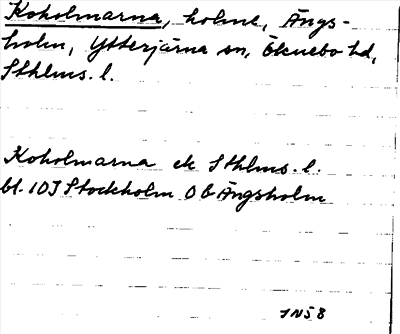 Koholmarna, holme, Ängs-
holm, Ytterjärna sn, Öknebo hd,
Sthlms. l.
Koholmarna ek Sthlms. l.
bl. 10J Stockholm O b Ängsholm
JN58